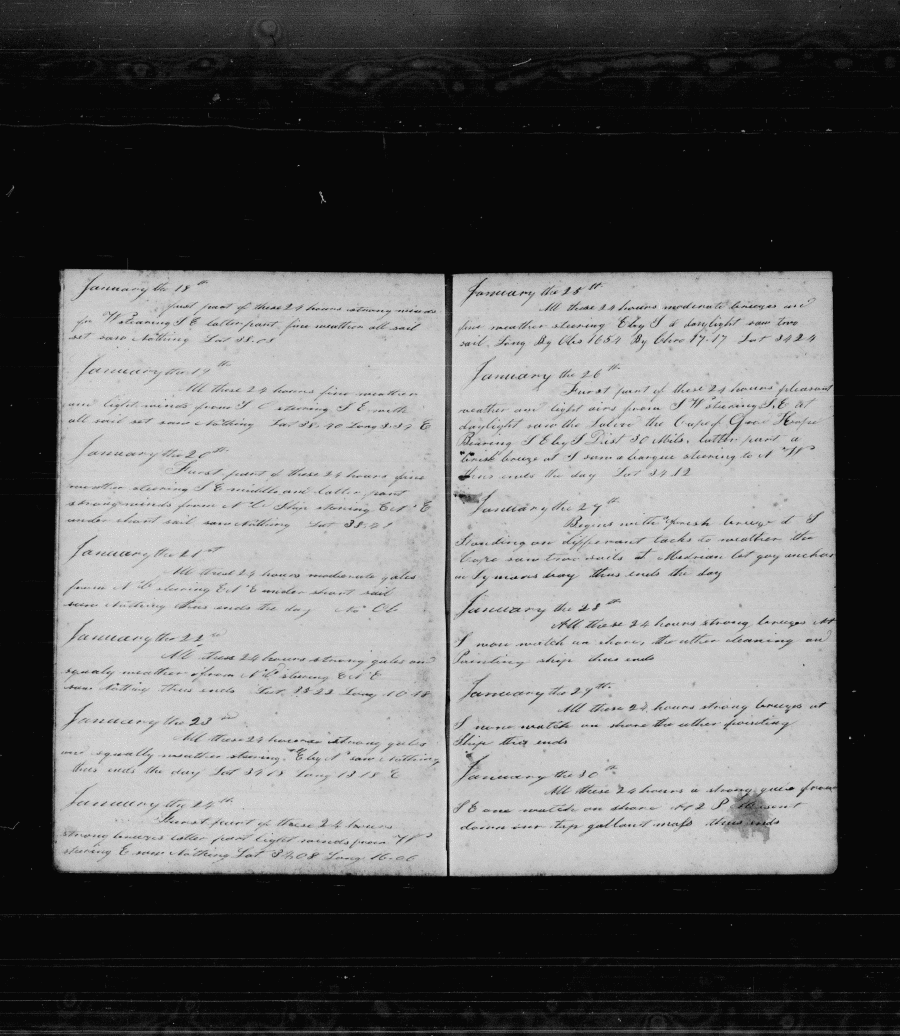 January the 18th
first part of these 24 hours strong winds
fr W stearing S E latter part fine weather all sail
set saw Nothing Lat 38.08
January the 19th
All these 24 hours fine weather
and light winds from S stearing S E with
all sail set saw Nothing Lat 38-40 Long 3-34 E
January the 20th
Furst part of these 24 hours fine
weather stearing S E middle and latter part
strong winds from N W Ship stearing E N E
under short sail saw Nothing Lat 38-41
January the 21st
All these 24 hours moderate gales
from N W stearing E N E under short sail
saw Nothing thus ends the day No Ob
January the 22nd
All these 24 hours strong gales and
squaly weather from N W stearing E N E
saw Nothing thus ends Lat 35 22 Long 10-18
January the 23rd
All these 24 hours strong gales
and squally weather stearing E by N saw Nothing
thus ends the day Lat 34 13 Long 13 18 E
January the 24th
Furst part of these 24 hours
strong breezes latter part light winds from W
stearing E saw Nothing Lat 34.08 Long 16-06
January the 25th
All these 24 hours moderate breezes and
fine weather stearing E by S at daylight saw two
sail. Long By Obs 16 54 By Chro 17-17 Lat 34 24
January the 26th
Furst part of these 24 hours pleasant
weather and light airs from S W stearing S.E. At
daylight saw the the Cape of Good Hope
Bearing S E by S Dist 30 Mils. latter part a
brisk breeze at S saw a barque stearing to N W
thus ends the day Lat 34.12
January the 27th
Begins with fresh breeze at S
Standing on differant tacks to weather the
Cape saw two sails at let goy anchor
in Symons bay thus ends the day
January the 28th
All these 24 hours strong breezes At
S now watch on shore, the other cleaning and
Painting ship thus ends
January the 29th
All these 24 hours strong breezes at
S now watch on shore the other painting
Ship thus ends
January the 30th
All these 24 hours a strong gale from
S E one watch on shore At 2 P M sent
down our top gallant masts thus ends